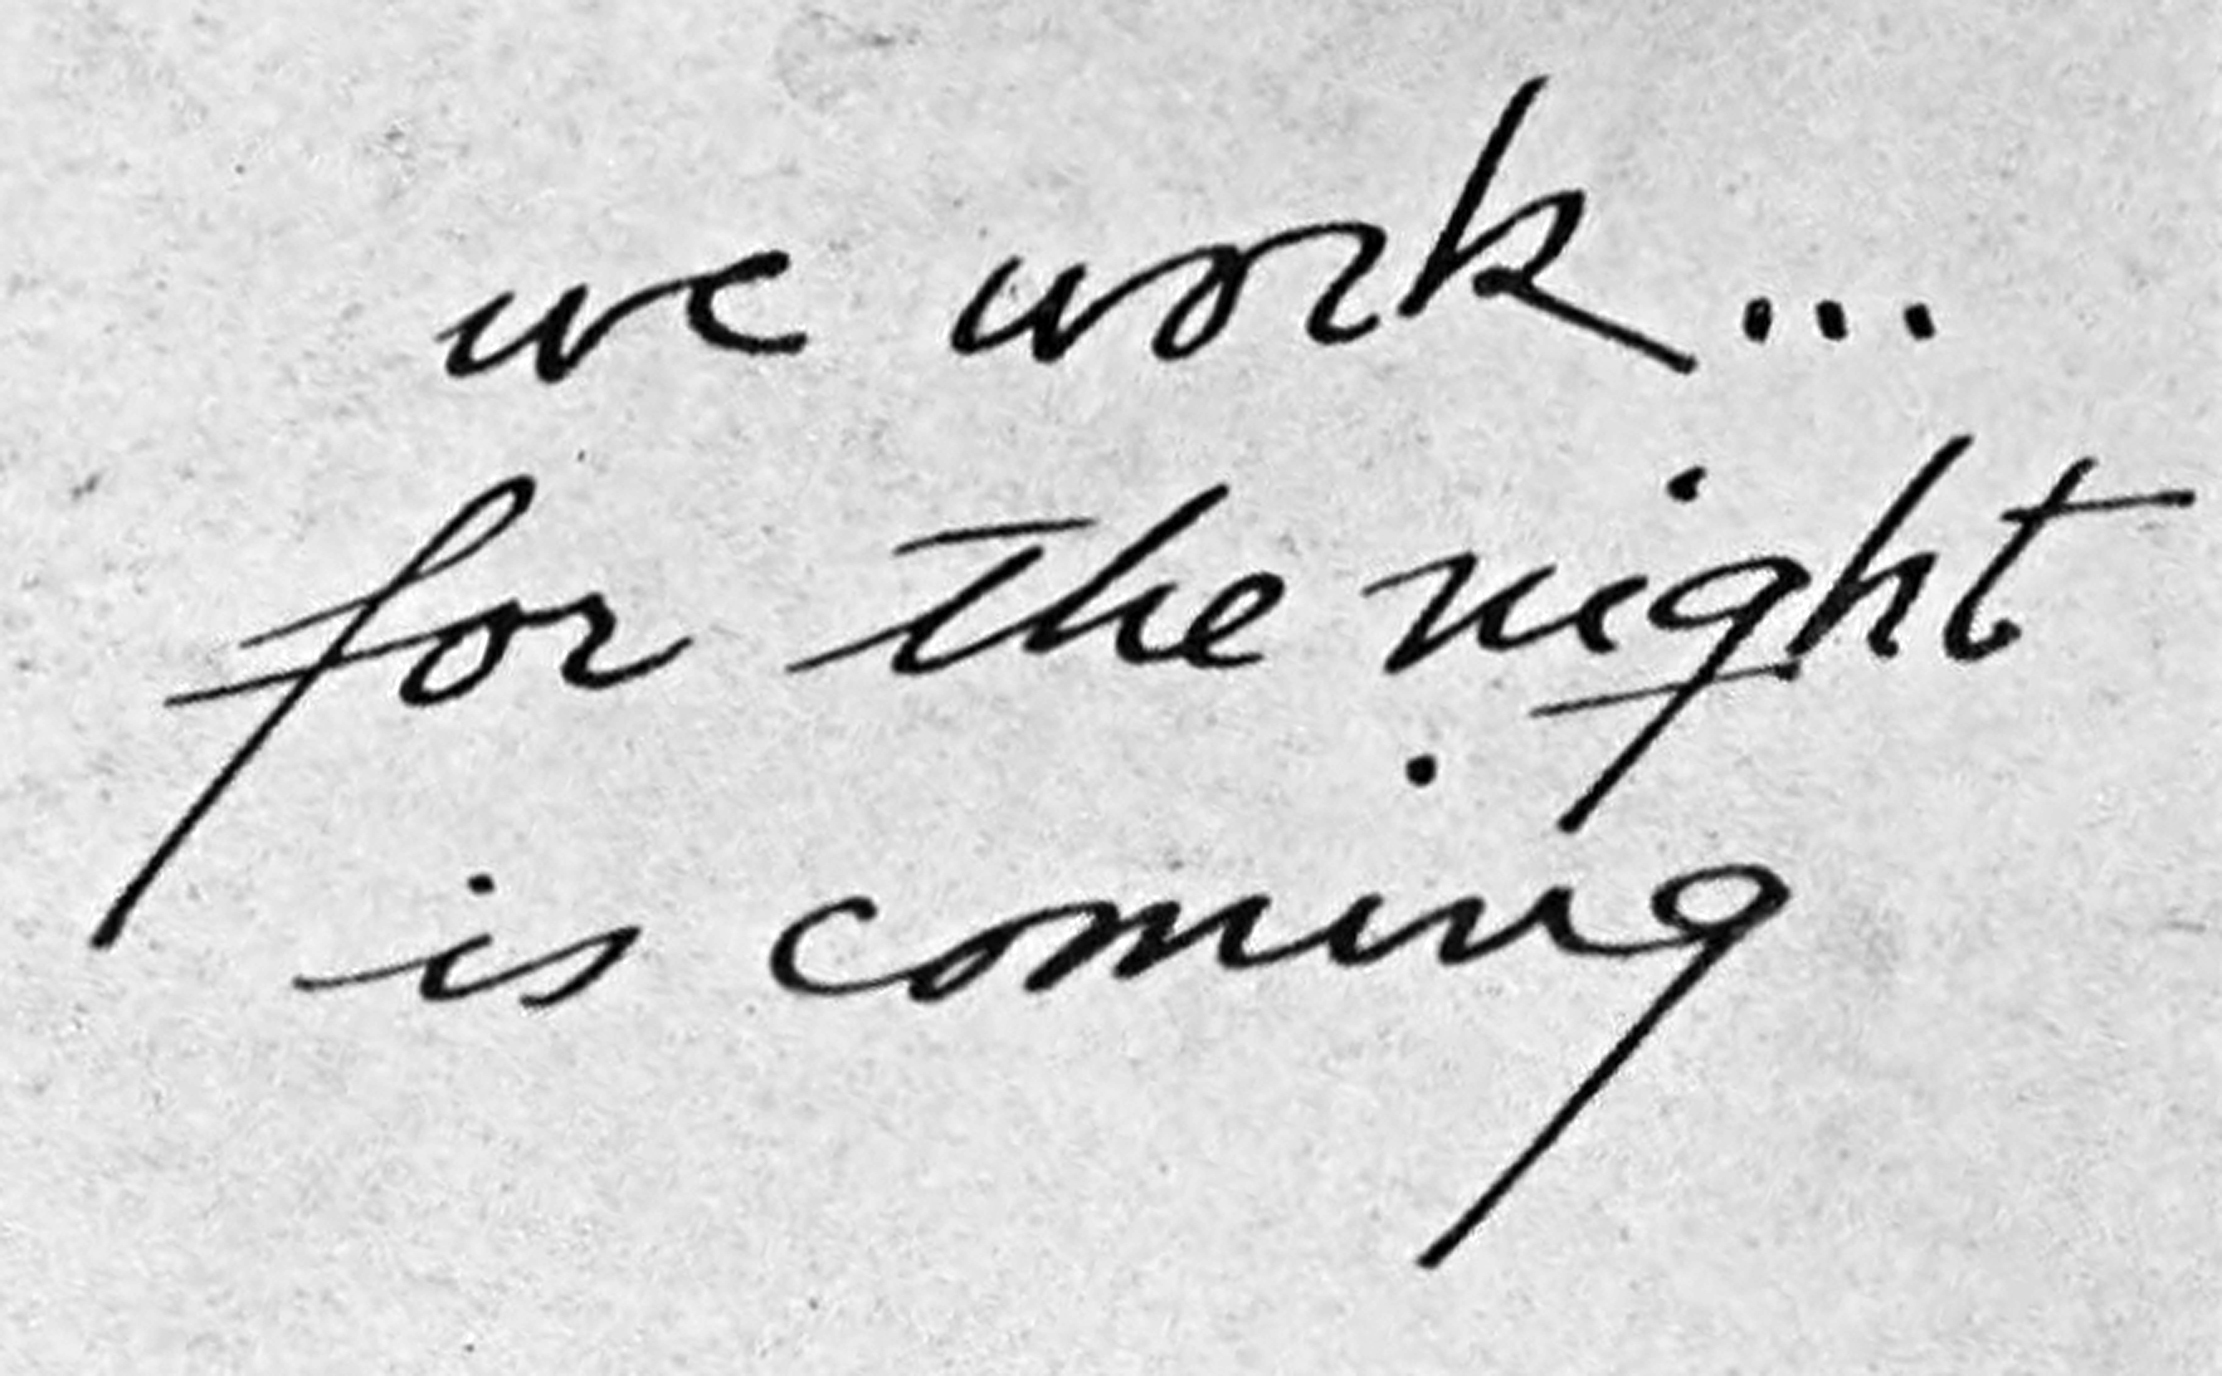 we work...
for the night
is coming